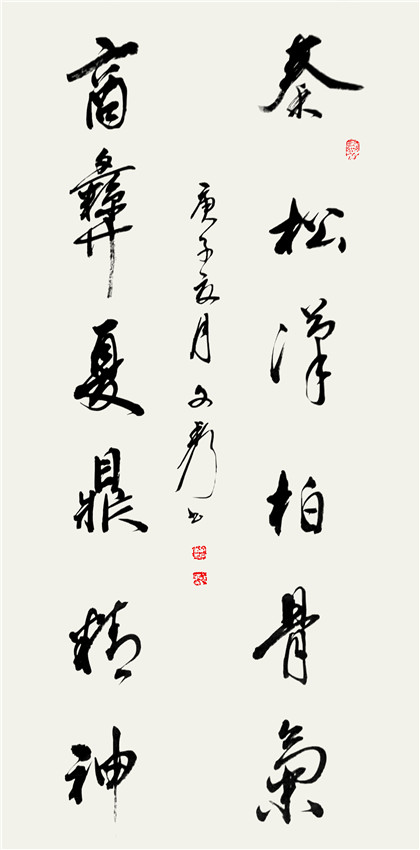 秦松漢柏骨氣
商彝夏鼎精神
庚子夜月文彬书